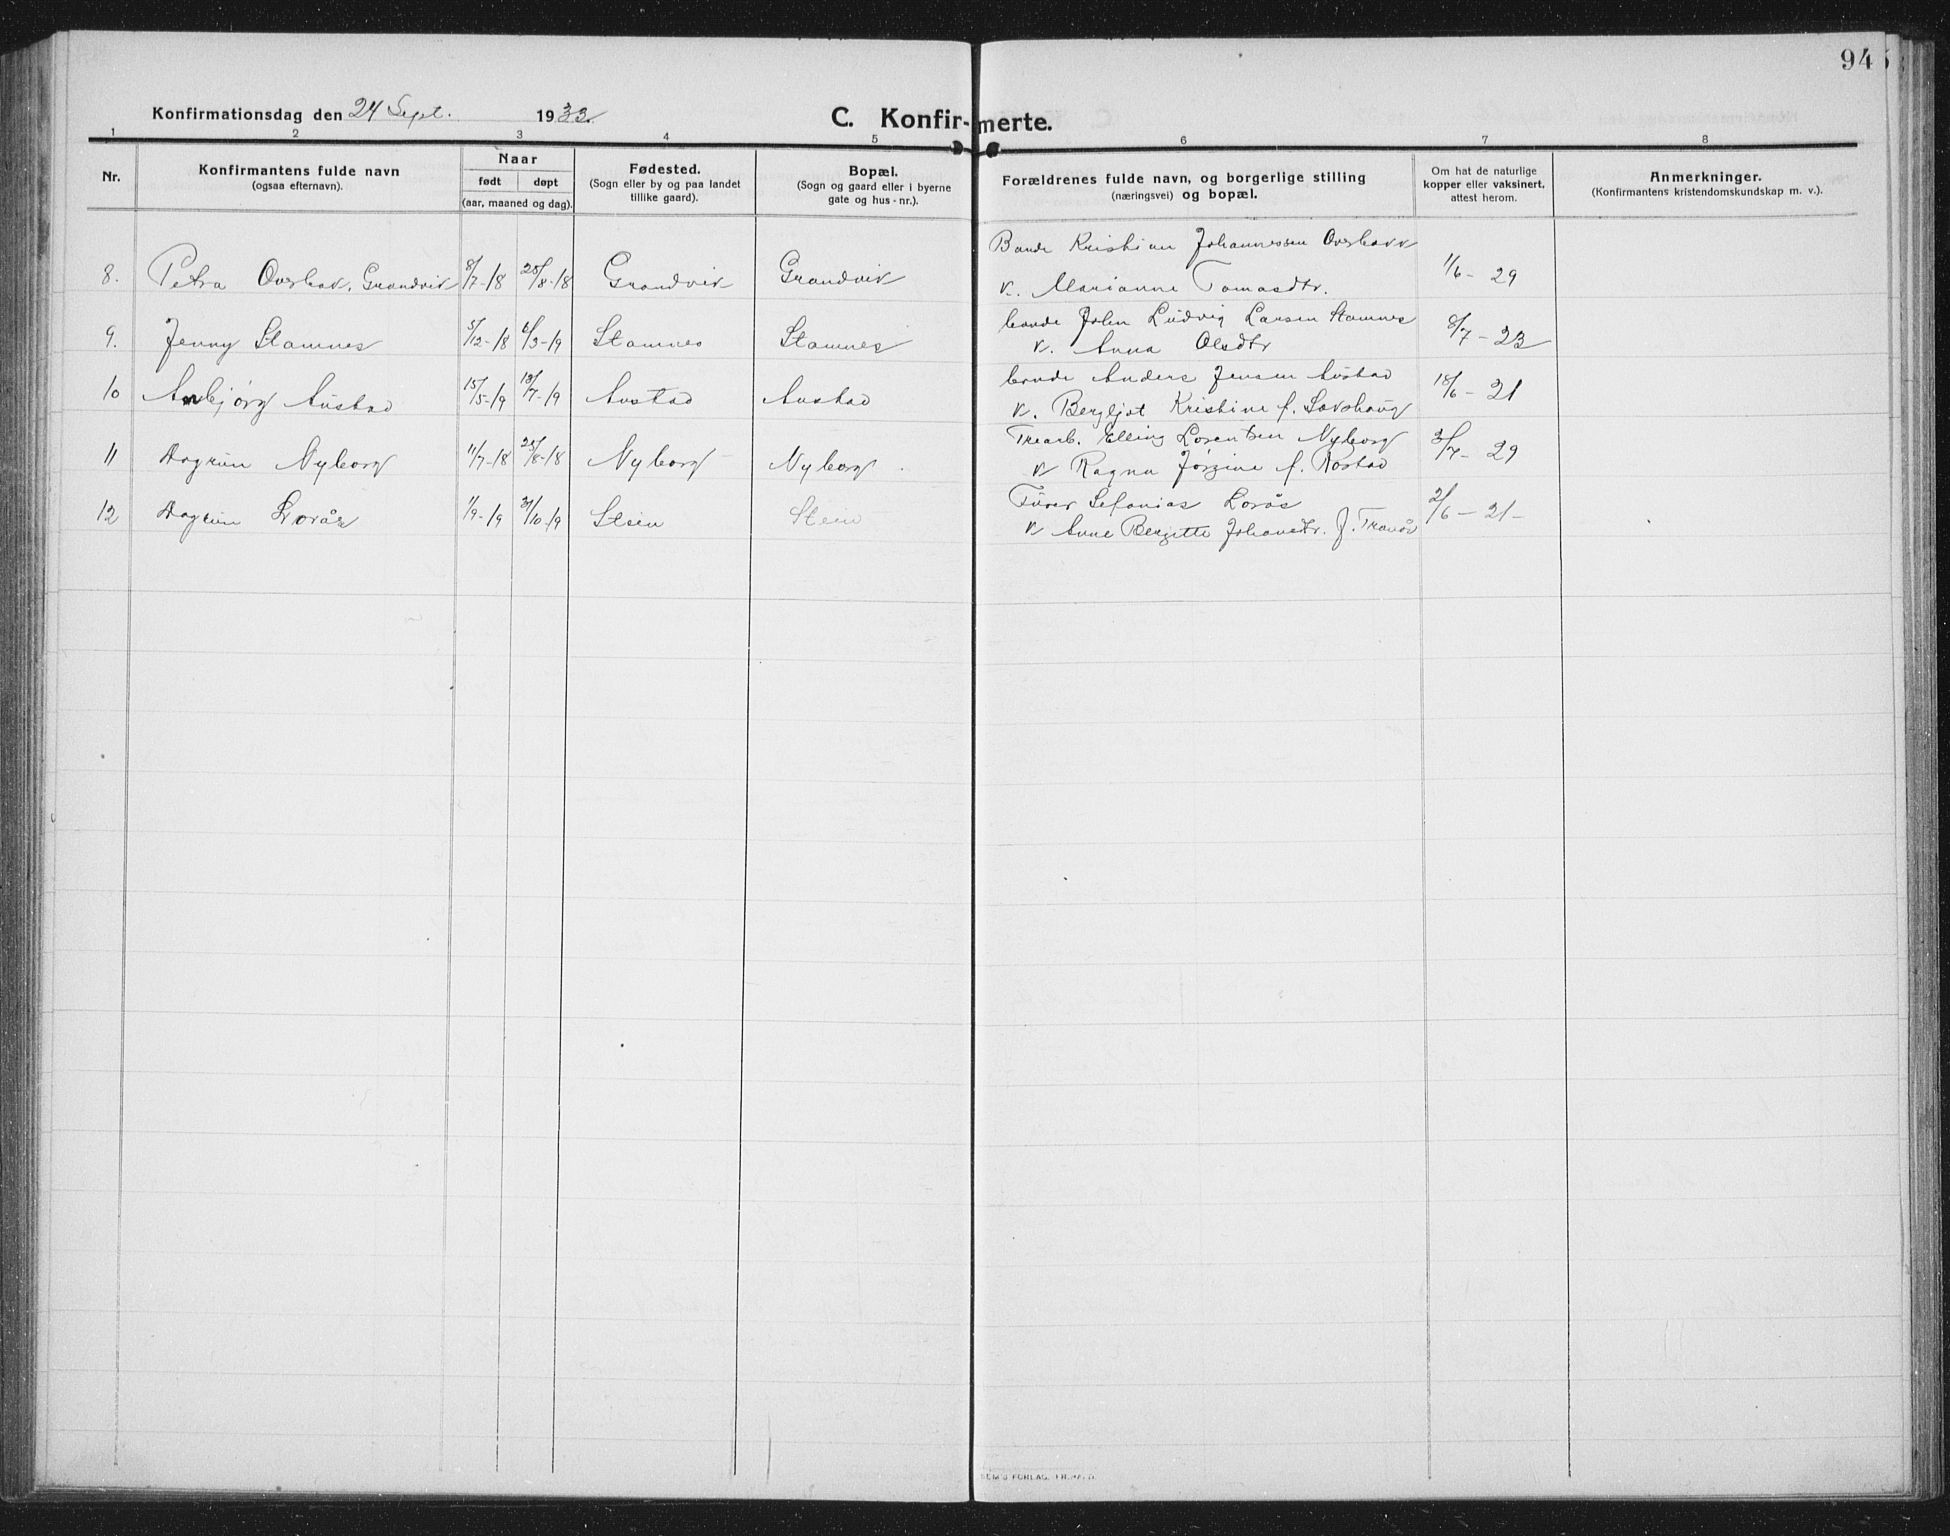 94
Konfirmationsdag den 24 Sept. 1933
C. Konfirmerte.
1 2 3 4 5 6 7 8
Nr.
Konfirmantens fulde navn
(ogsaa efternavn).
Naar
født døpt
(aar, maaned og dag).
Fødested.
(Sogn eller by og paa landet
tillike gaard).
Bopæl.
(Sogn og gaard eller i byerne
gate og hus-nr.).
Forældrenes fulde navn, og borgerlige stilling
(næringsvei) og bopæl.
Om hat de naturlige
kopper eller vaksinert,
attest herom.
Anmerkninger.
(Konfirmantens kristendomskundskap m. v.).
Bonde Kristian Johannessen Overhavn
8. Petra Overhav, Grandvik 8/7-18 25/8-18 Grandvik Grandvik 1/6-29
v. Marianne Tomasdtr.
bonde John Ludvig Larsen Stamnes
9. Jenny Stamnes 5/12-18 6/3-19 Stamnes Stamnes 8/7-23
v. Anna Olsdtr
bonde Anders Jensen Austad
10 Anbjørg Austad 15/5-19 13/7-19 Austad Austad 18/6-21
v. Bergljot Kristine f.
Trearb. Elling Lorentsen Nyborg
11 Dagrun Nyborg 11/7-18 25/8-18 Nyborg Nyborg 3/7-29
v Ragna Jørgine f. Røstad
Sefanias Lorås
12 Dagrun Lorås 1/9-19 31/10-19 Stein Stein 2/6-21-
v Anne Bergitte Johansdtr. f. Tranås